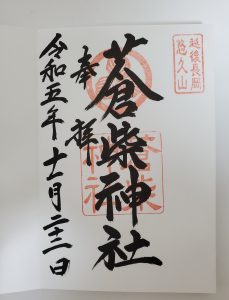 越後長岡
悠久山
奉拝
蒼柴神社
蒼柴
神社
令和五年十一月二十三日